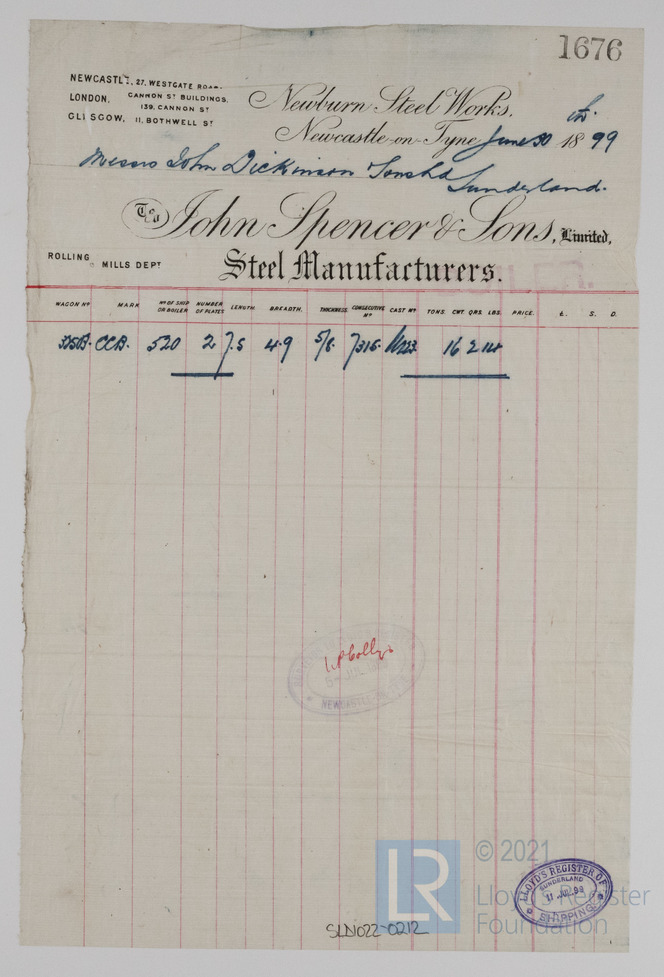 1676
NEWCASTLE, 27. WESTGATE ROAD.
LONDON, CANNON ST BUILDINGS,
139. CANNON ST
GLASGOW, 11, BOTHWELL ST
Newburn Steel Works,
Newcastle-on-Tyne June 30 1899
Messrs John Dickinson Sons Ld
Sunderland.
To John Spencer & Sons, Limited,
ROLLING MILLS DEPT
Steel Manufacturers.
WAGON No MARK No OF SHIP OR BOILER NUMBER OF PLATES LENGTH. BREADTH. THICKNESS. CONSECUTIVE No CAST No TONS. CWT. QRS. LBS. PRICE. £. S. D.
CCB. 520 2 7.5 4.9 5/8. 7315. 16 2 14
NEWCASTLE
© 2021
LR
Lloyd's Register
Foundation
LLOYD'S REGISTER OF
SUNDERLAND
11 JUL 99
SHIPPING.
SLD022-0212